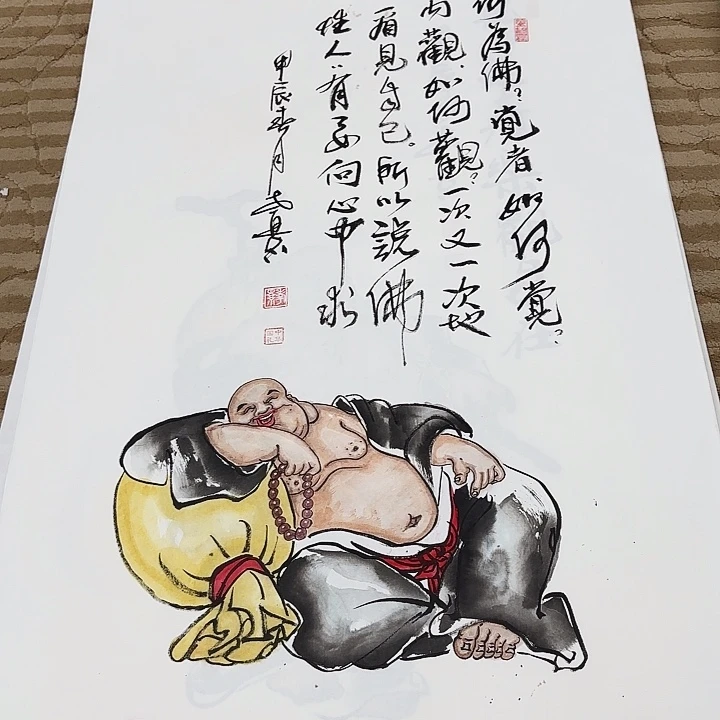 何為佛？覺者、如何覺？
内觀、如何觀？一次又一次地
看見自己。所以說佛
性人〻有要向心中求
甲辰春月